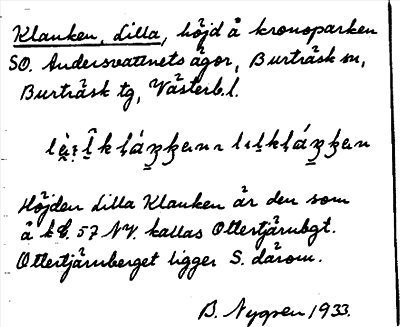 Klauken, Lilla, höjd å kronoparken
SO. Andersvattnets ägor, Burträsk sn,
Burträsk tg, Västerb.l.
Höjden Lilla Klauken är den som
å kb. 57 NV. kallas Ottertjärnbgt.
Ottertjärnberget ligger S. därom.
B. Nygren 1933.